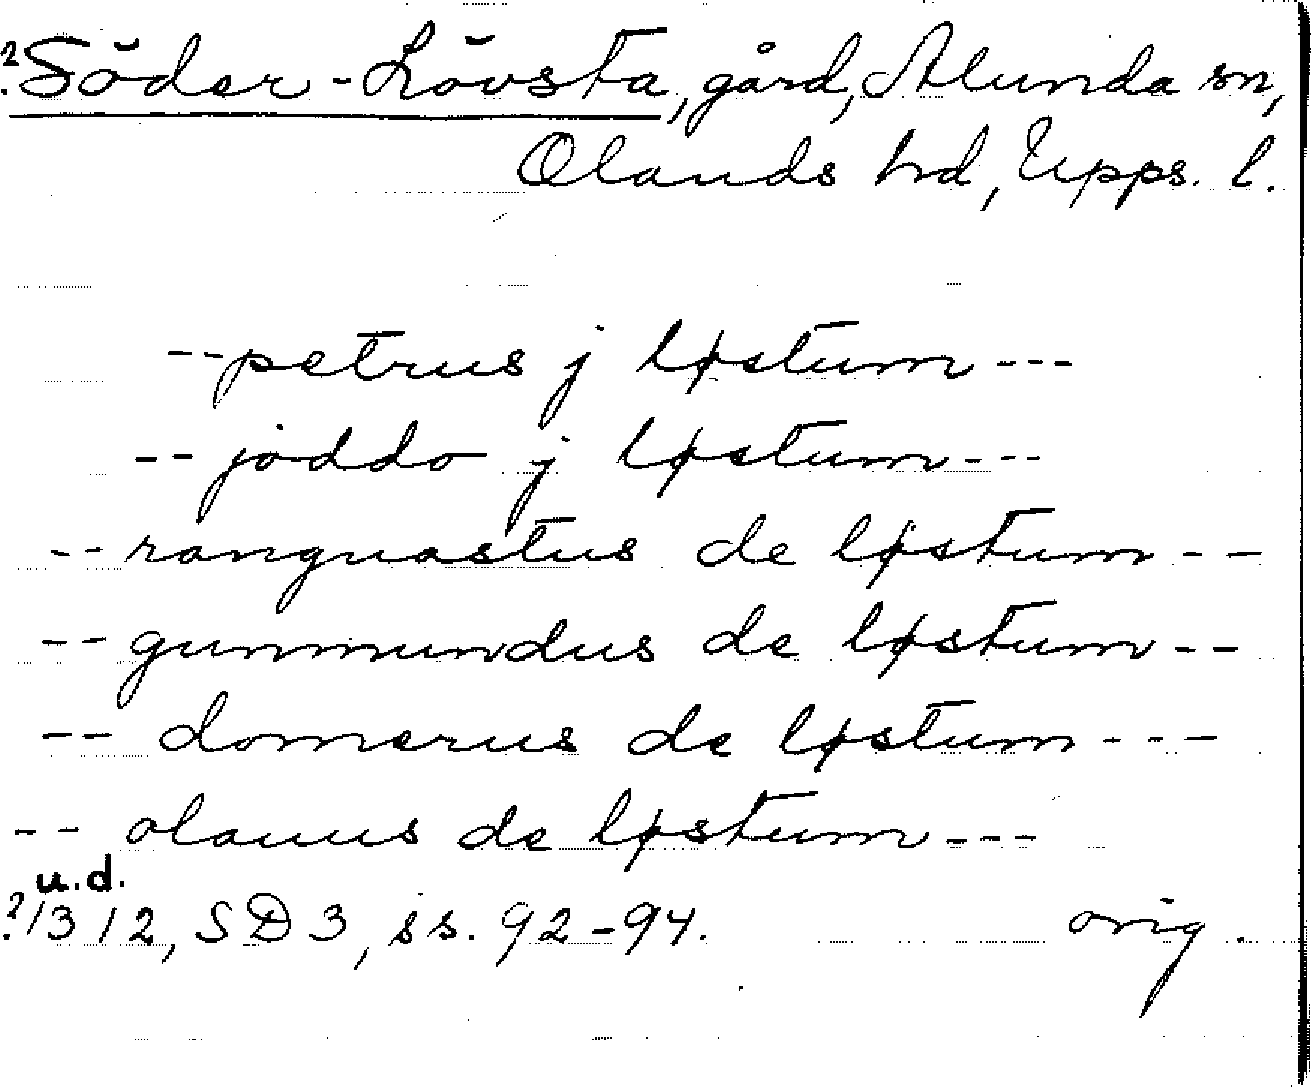 ?Söder-Lövsta, gård, Alunda sn,
Olands hd, Upps. l.
--petrus j løstum---
--joddo j løstum---
--ranguastus de løstum--
--gunmundus de løstum--
--domerus de løstum---
--olauus de løstum---
u.d.
?1312, SD 3, ss. 92-94. orig.